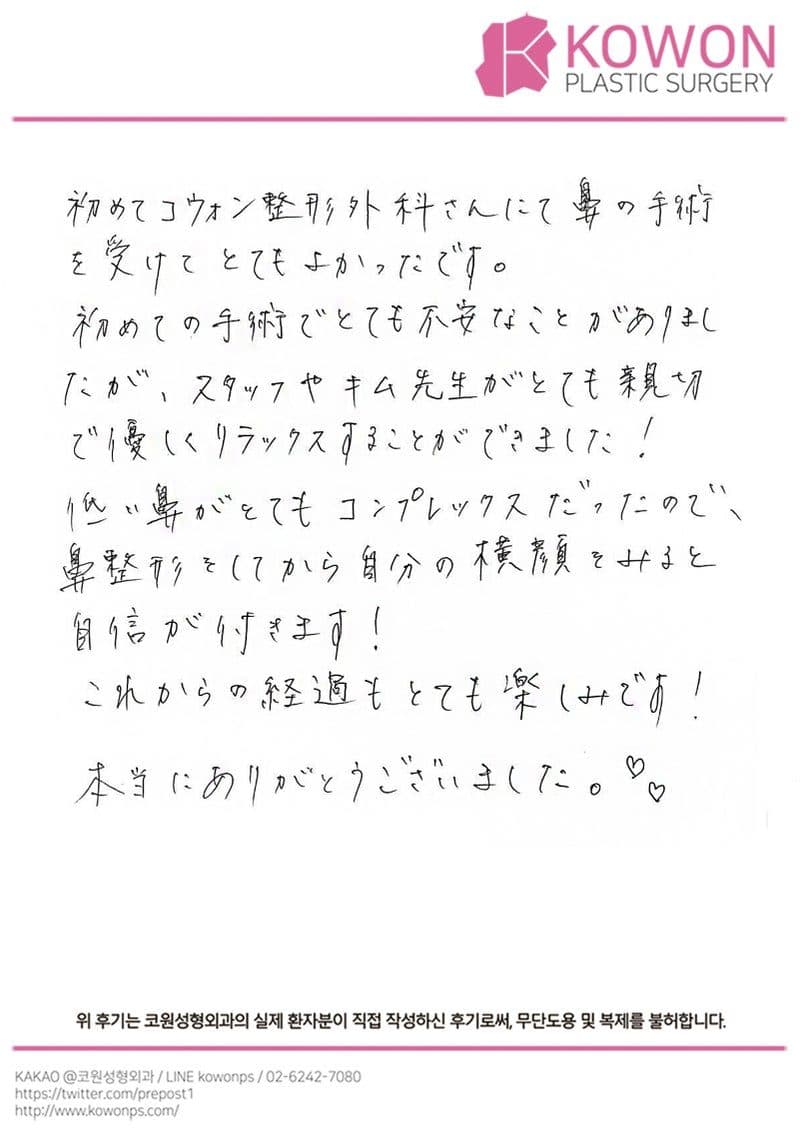 KOWON
PLASTIC SURGERY
初めてコウォン整形外科さんにて鼻の手術
を受けてとてもよかったです。
初めての手術でとても不安なことがありまし
たが、スタッフやキム先生がとても親切
で優しくリラックスすることができました！
低い鼻がとてもコンプレックスだったので、
鼻整形をしてから自分の横顔をみると
自信が付きます！
これからの経過もとても楽しみです！
本当にありがとうございました。♡♡
위 후기는 코원성형외과의 실제 환자분이 직접 작성하신 후기로써, 무단도용 및 복제를 불허합니다.
KAKAO @코원성형외과 / LINE kowonps / 02-6242-7080
https://twitter.com/prepost1
http://www.kowonps.com/